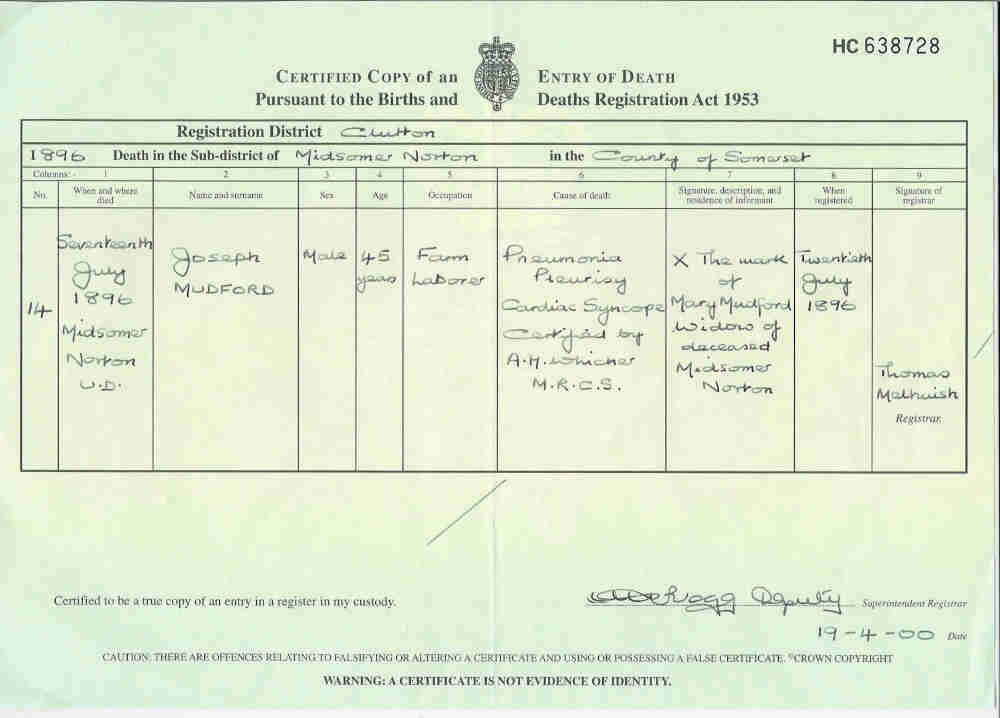 HC 638728
CERTIFIED COPY of an ENTRY OF DEATH
Pursuant to the Births and Deaths Registration Act 1953
Registration District Clutton
1896 Death in the Sub-district of Midsomer Norton in the County of Somerset
Columns:- 1 2 3 4 5 6 7 8 9
No. When and where died Name and surname Sex Age Occupation Cause of death Signature, description, and residence of informant When registered Signature of registrar
14
Seventeenth
July
1896
Midsomer
Norton
U.D.
Joseph
MUDFORD
Male
45
years
Farm
Laborer
Pneumonia
Pleurisy
Cardiac Syncope
Certified by
A.H. Whicher
M.R.C.S.
X The mark
of
Mary Mudford
Widow of
deceased
Midsomer
Norton
Twentieth
July
1896
Thomas
Melhuish
Registrar.
Certified to be a true copy of an entry in a register in my custody.
Deputy Superintendent Registrar
19-4-00 Date
CAUTION: THERE ARE OFFENCES RELATING TO FALSIFYING OR ALTERING A CERTIFICATE AND USING OR POSSESSING A FALSE CERTIFICATE. ©CROWN COPYRIGHT
WARNING: A CERTIFICATE IS NOT EVIDENCE OF IDENTITY.